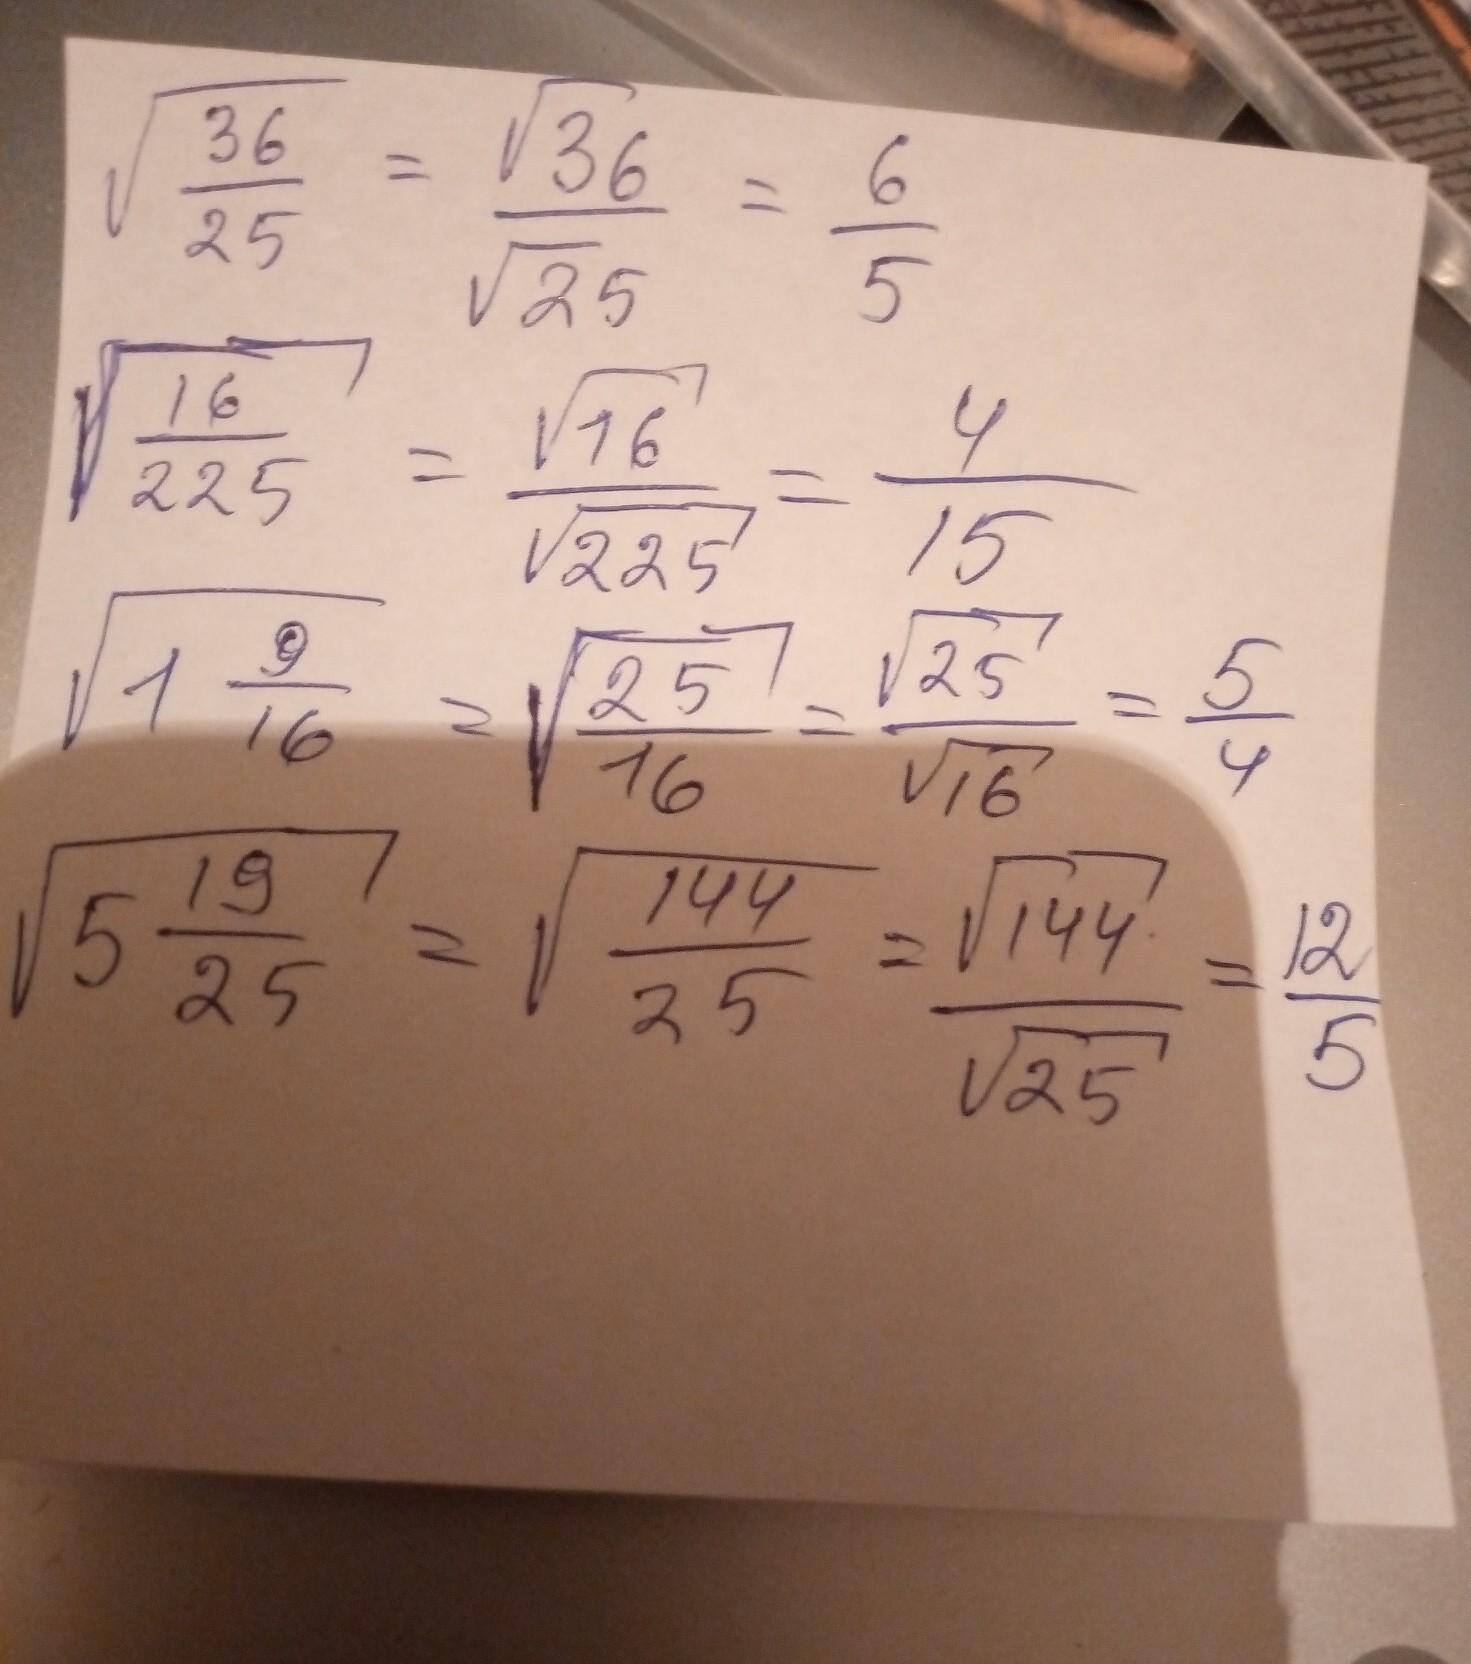 √(36/25) = √36/√25 = 6/5
√(16/225) = √16/√225 = 4/15
√(1 9/16) = √(25/16) = √25/√16 = 5/4
√(5 19/25) = √(144/25) = √144/√25 = 12/5